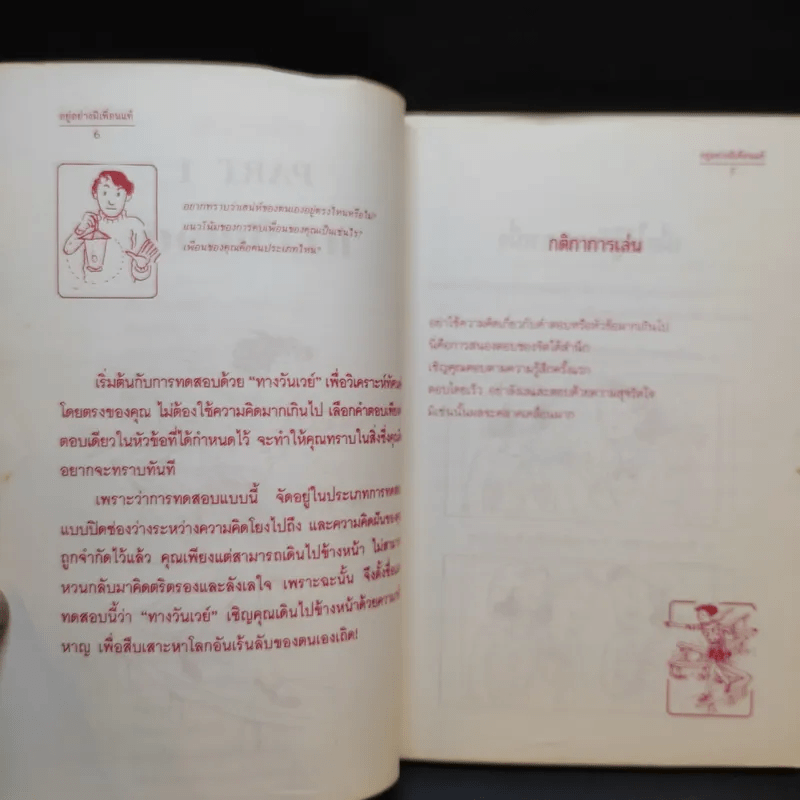 อยู่อย่างมีเพื่อนแท้
6
อยากทราบว่าเสน่ห์ของตนเองอยู่ตรงไหนหรือไม่?
แนวโน้มของการคบเพื่อนของคุณเป็นเช่นไร?
เพื่อนของคุณคือคนประเภทไหน?
เริ่มต้นกับการทดสอบด้วย “ทางวันเวย์” เพื่อวิเคราะห์ทัศน
โดยตรงของคุณ ไม่ต้องใช้ความคิดมากเกินไป เลือกคำตอบเพียง
ตอบเดียวในหัวข้อที่ได้กำหนดไว้ จะทำให้คุณทราบในสิ่งซึ่งคุณ
อยากจะทราบทันที
เพราะว่าการทดสอบแบบนี้ จัดอยู่ในประเภทการทดส
แบบปิดช่องว่างระหว่างความคิดโยงไปถึง และความคิดฝันของคุ
ถูกจำกัดไว้แล้ว คุณเพียงแต่สามารถเดินไปข้างหน้า ไม่สามา
หวนกลับมาคิดตริตรองและลังเลใจ เพราะฉะนั้น จึงตั้งชื่อแบ
ทดสอบนี้ว่า “ทางวันเวย์” เชิญคุณเดินไปข้างหน้าด้วยความก
หาญ เพื่อสืบเสาะหาโลกอันเร้นลับของตนเองเถิด!
อยู่อย่างมีเพื่อนแท้
7
กติกาการเล่น
อย่าใช้ความคิดเกี่ยวกับคำตอบหรือหัวข้อมากเกินไป
นี่คือการสนองตอบของจิตใต้สำนึก
เชิญคุณตอบตามความรู้สึกครั้งแรก
ตอบโดยเร็ว อย่าลังเลและตอบด้วยความสุจริตใจ
มิเช่นนั้นผลจะคลาดเคลื่อนมาก